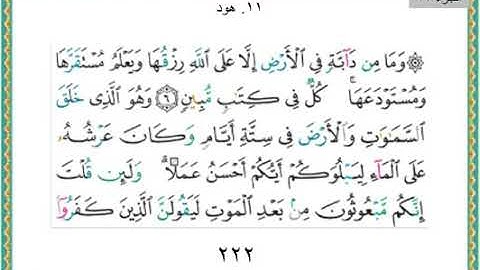 ١١. هود
۞ وَمَا مِن دَآبَّةٍ فِي ٱلْأَرْضِ إِلَّا عَلَى ٱللَّهِ رِزْقُهَا وَيَعْلَمُ مُسْتَقَرَّهَا
وَمُسْتَوْدَعَهَا ۚ كُلٌّ فِي كِتَٰبٍ مُّبِينٍ ٦ وَهُوَ ٱلَّذِى خَلَقَ
ٱلسَّمَٰوَٰتِ وَٱلْأَرْضَ فِي سِتَّةِ أَيَّامٍ وَكَانَ عَرْشُهُۥ
عَلَى ٱلْمَآءِ لِيَبْلُوَكُمْ أَيُّكُمْ أَحْسَنُ عَمَلًا ۗ وَلَئِن قُلْتَ
إِنَّكُم مَّبْعُوثُونَ مِنۢ بَعْدِ ٱلْمَوْتِ لَيَقُولَنَّ ٱلَّذِينَ كَفَرُوٓا۟
٢٢٢